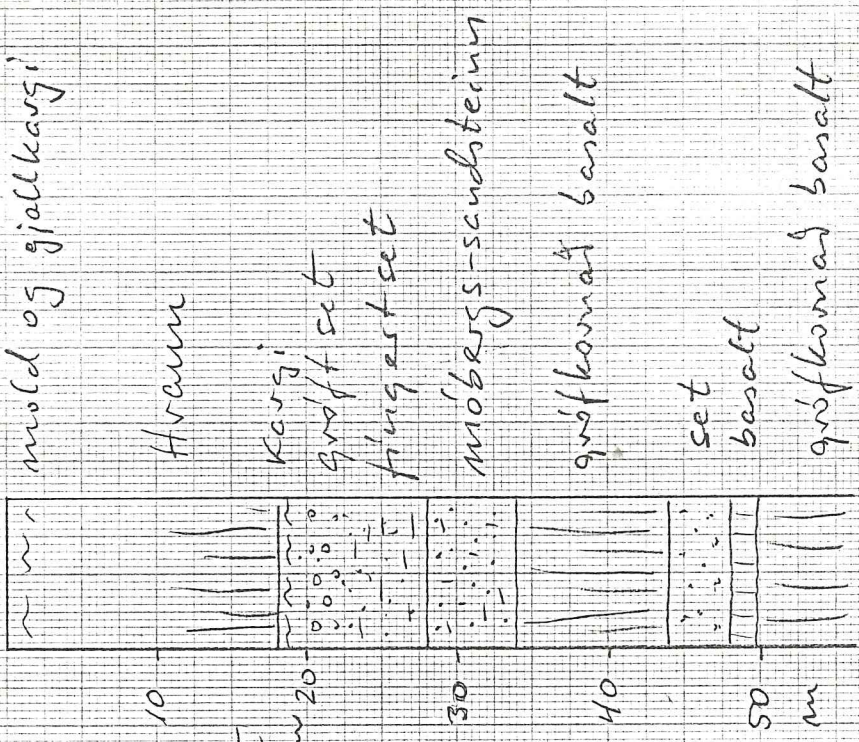 mold og gjallkargi
Hraun
Kargi
gróft set
fíngert set
móbergs-sandsteinn
grófkornað basalt
set
basalt
grófkornað basalt
10
20
30
40
50
m